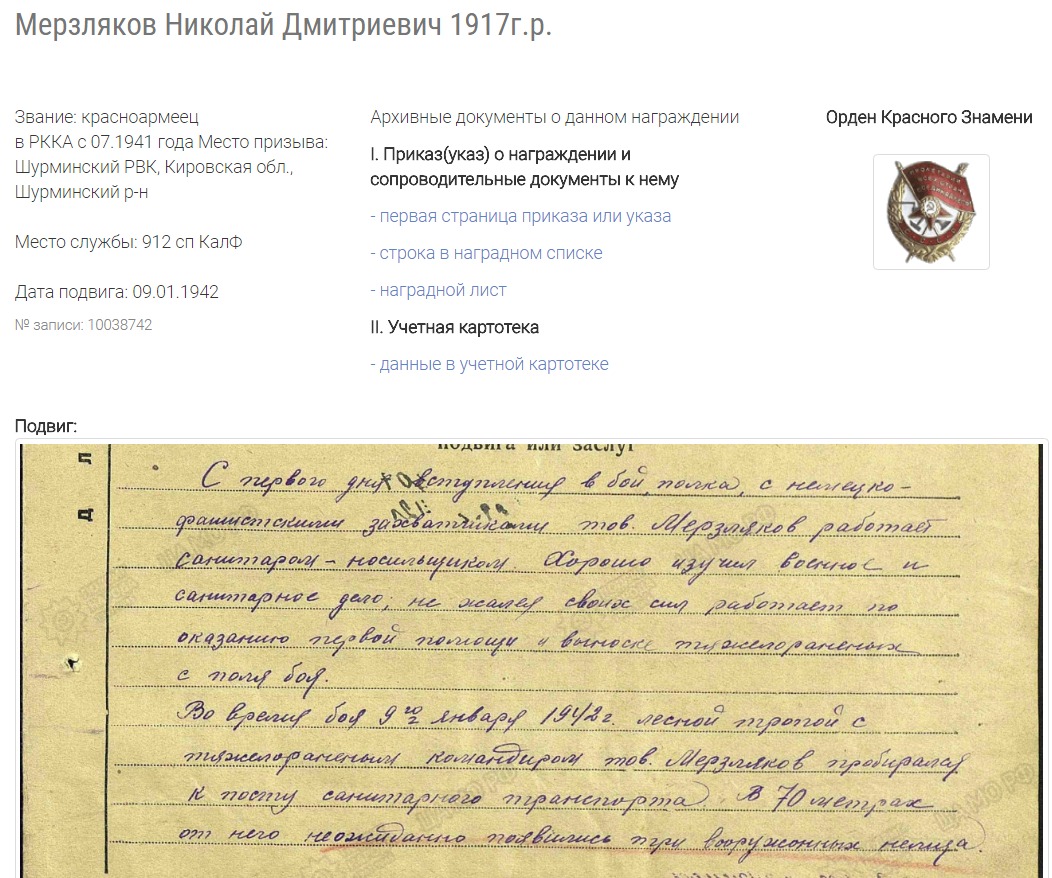 Мерзляков Николай Дмитриевич 1917г.р.
Звание: красноармеец
в РККА с 07.1941 года Место призыва:
Шурминский РВК, Кировская обл.,
Шурминский р-н
Место службы: 912 сп КалФ
Дата подвига: 09.01.1942
№ записи: 10038742
Архивные документы о данном награждении
I. Приказ(указ) о награждении и
сопроводительные документы к нему
- первая страница приказа или указа
- строка в наградном списке
- наградной лист
II. Учетная картотека
- данные в учетной картотеке
Орден Красного Знамени
Подвиг:
подвига или заслуг
С первого дня вступления в бой, полка, с немецко-
фашистскими захватчиками тов. Мерзляков работает
санитаром-носильщиком. Хорошо изучил военное и
санитарное дело, не жалея своих сил работает по
оказанию первой помощи и выноске тяжелораненых
с поля боя.
Во время боя 9го января 1942г. лесной тропой с
тяжелораненым командиром тов. Мерзляков пробирался
к посту санитарного транспорта. В 70 метрах
от него неожиданно появились три вооружонных немца.